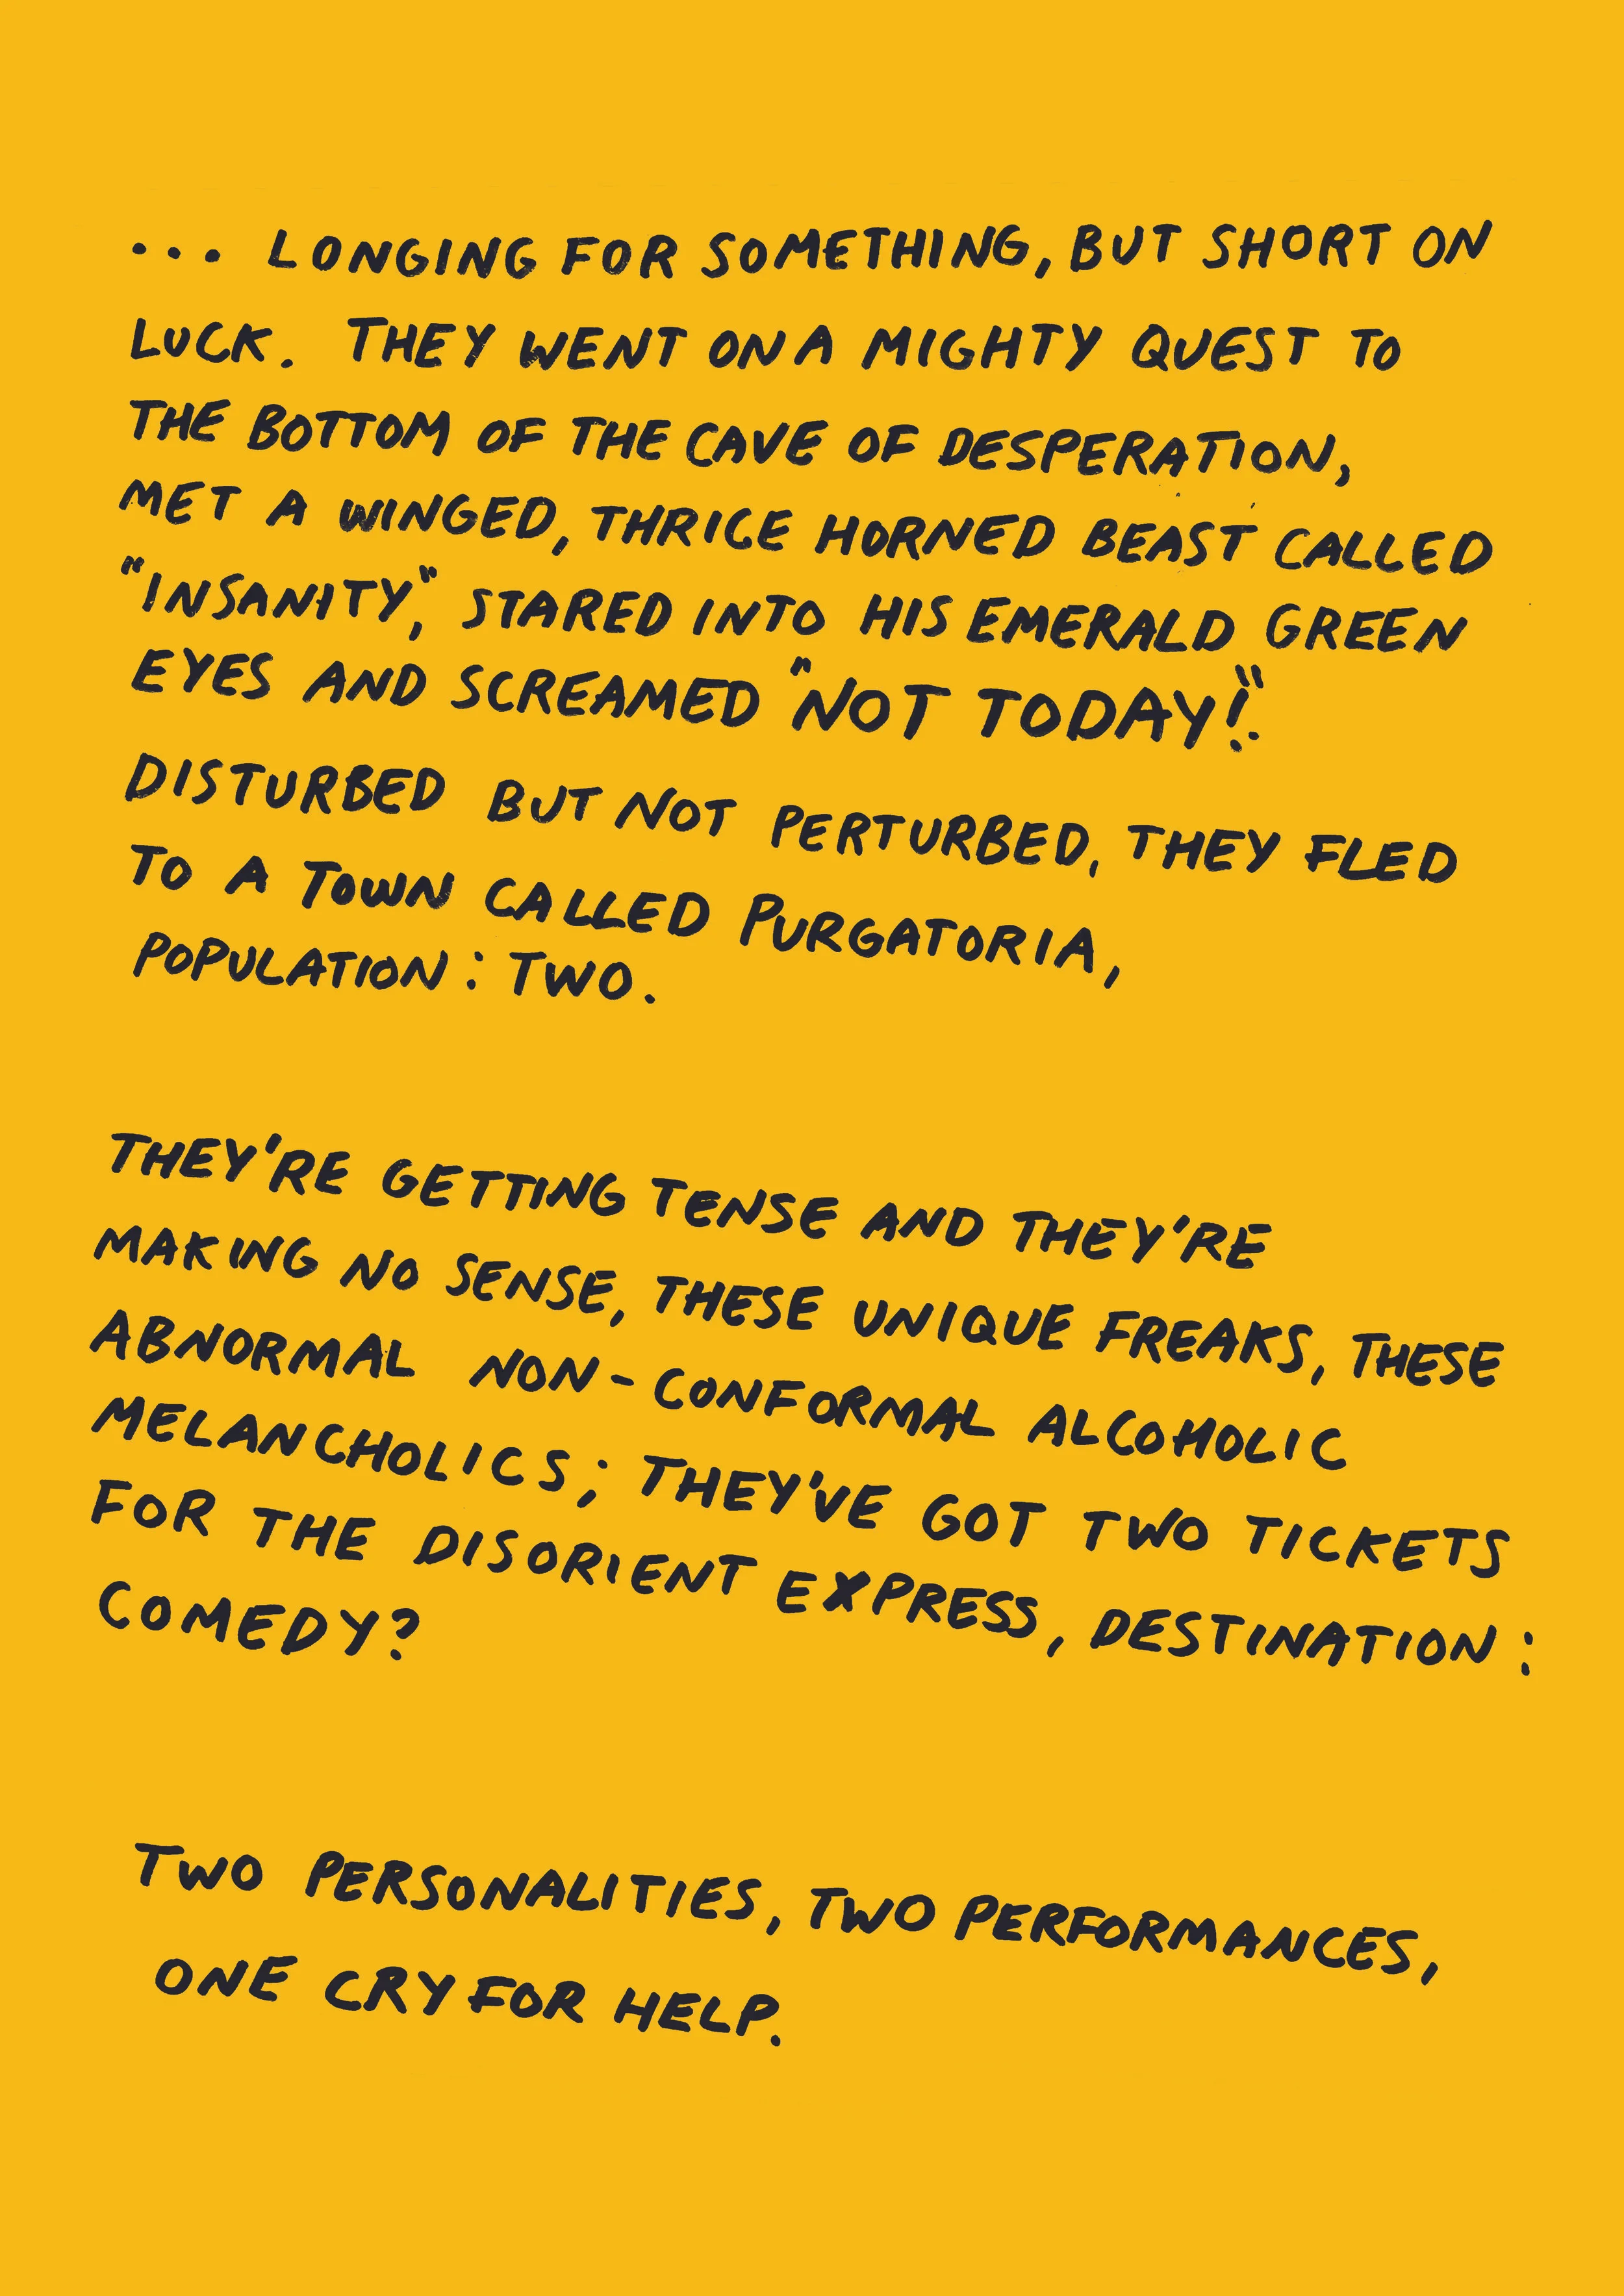 ... LONGING FOR SOMETHING, BUT SHORT ON
LUCK. THEY WENT ON A MIGHTY QUEST TO
THE BOTTOM OF THE CAVE OF DESPERATION,
MET A WINGED, THRICE HORNED BEAST CALLED
"INSANITY", STARED INTO HIS EMERALD GREEN
EYES AND SCREAMED "NOT TODAY!".
DISTURBED BUT NOT PERTURBED, THEY FLED
TO A TOWN CALLED PURGATORIA,
POPULATION: TWO.
THEY'RE GETTING TENSE AND THEY'RE
MAKING NO SENSE, THESE UNIQUE FREAKS, THESE
ABNORMAL NON-CONFORMAL ALCOHOLIC
MELANCHOLICS; THEY'VE GOT TWO TICKETS
FOR THE DISORIENT EXPRESS, DESTINATION:
COMEDY?
TWO PERSONALITIES, TWO PERFORMANCES,
ONE CRY FOR HELP.